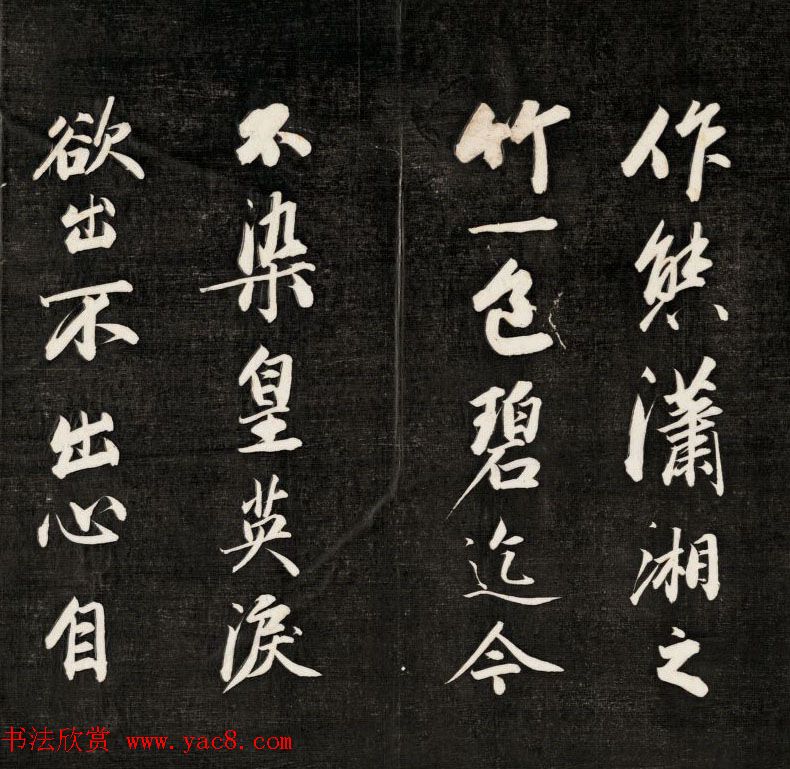 作態瀟湘之
竹一色碧迄今
不染皇英淚
欲出不出心自
书法欣赏 www.yac8.com